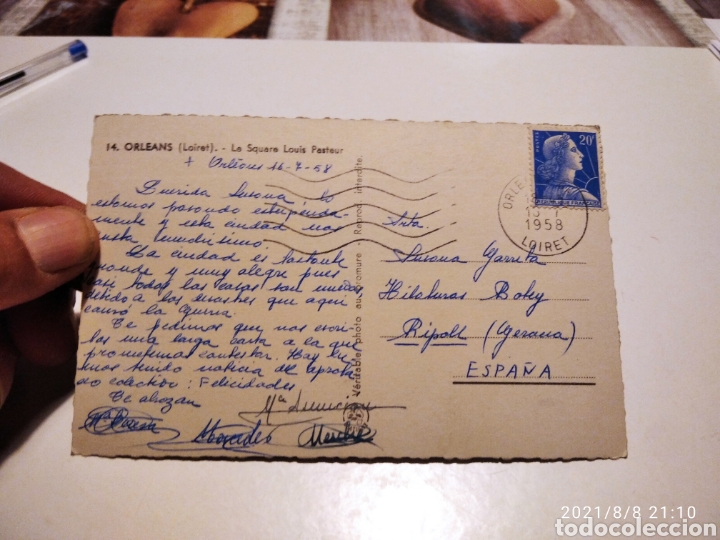 14. ORLEANS (Loiret). - Le Square Louis Pasteur
+ Orléans 16-7-58
Querida Susana: lo
estamos pasando estupenda-
mente y esta ciudad nos
gusta muchísimo.
La ciudad es bastante
grande y muy alegre pues
casi todas las casas son nuevas
debido a los que aquí
causó la guerra.
Te pedimos que nos escri-
bas una larga carta a la que
prometemos contestar. Hoy he-
mos tenido noticia de aproba-
do colectivo: Felicidades
Te abrazan
Mª Asunción
Mercedes
Véritables photo au bromure - Reprod. interdite
20F
POSTES
REPUBLIQUE FRANÇAISE
ORLE
1958
LOIRET
Srta.
Susana Garreta
Hilaturas Botey
Ripoll (Gerona)
ESPAÑA
2021/8/8 21:10
todocoleccion